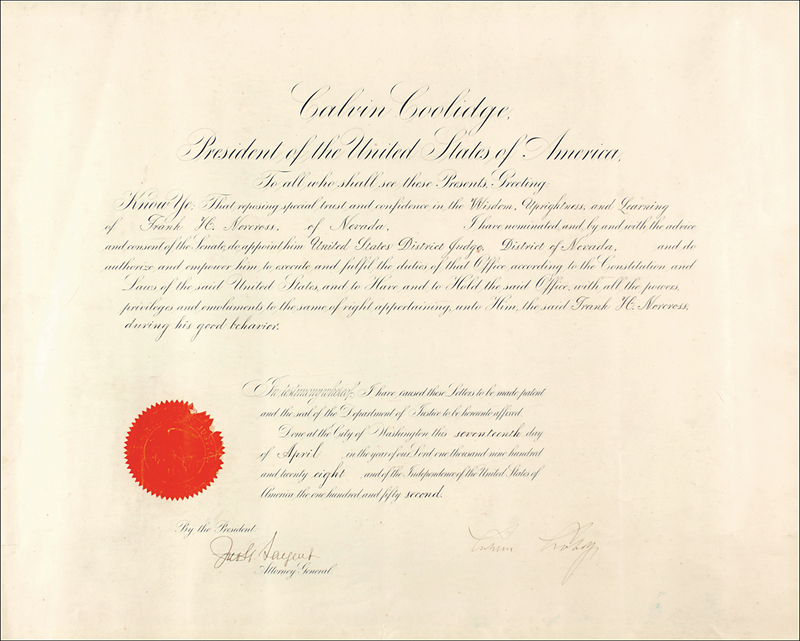 Calvin Coolidge,
President of the United States of America,
To all who shall see these Presents, Greeting:
Know Ye; That reposing special trust and confidence in the Wisdom, Uprightness, and Learning
of Frank H. Norcross, of Nevada, I have nominated, and, by and with the advice
and consent of the Senate, do appoint him United States District Judge, District of Nevada, and do
authorize and empower him to execute and fulfil the duties of that Office according to the Constitution and
Laws of the said United States, and to Have and to Hold the said Office, with all the powers,
privileges and emoluments to the same of right appertaining, unto Him, the said Frank H. Norcross,
during his good behavior.
In testimony whereof, I have caused these Letters to be made patent
and the seal of the Department of Justice to be hereunto affixed.
Done at the City of Washington this seventeenth day
of April in the year of our Lord one thousand nine hundred
and twenty eight and of the Independence of the United States of
America the one hundred and fifty second.
By the President:
Jno G. Sargent
Attorney General.
Calvin Coolidge